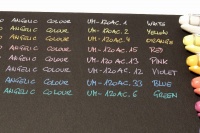 ANGELIC COLOUR UM-120AC. 1 WHITE
ANGELIC COLOUR UM-120AC. 2 YELLOW
ANGELIC COLOUR UM-120AC. 4 ORANGE
ANGELIC COLOUR UM-120AC. 15 RED
ANGELIC COLOUR UM-120AC. 13 PINK
ANGELIC COLOUR UM-120AC. 12 VIOLET
ANGELIC COLOUR UM-120AC. 33 BLUE
ANGELIC COLOUR UM-120AC. 6 GREEN